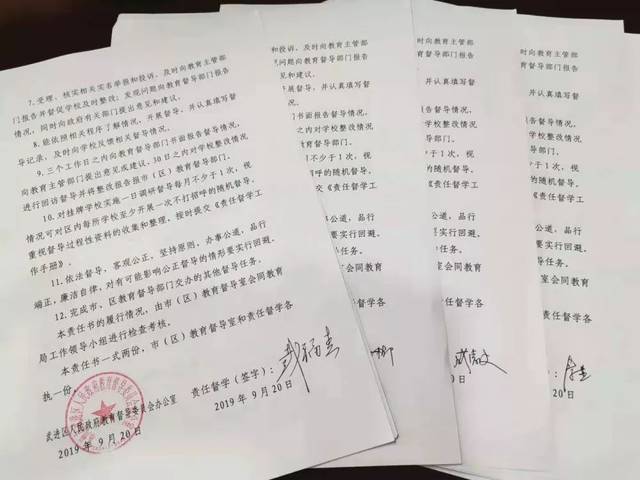 7. 受理、核实相关实名举报和投诉，及时向教育主管部
门报告并督促学校及时整改；发现问题向教育督导部门报告
情况，同时向政府有关部门提出意见和建议。
8. 能依照相关程序了解情况，开展督导，并认真填写督
导记录，及时向学校反馈相关督导情况。
9. 三个工作日之内向教育督导部门书面报告督导情况，
向教育主管部门提出意见或建议，30日之内对学校整改情况
进行回访督导并将整改报告报市（区）教育督导部门。
10. 对挂牌学校实施一日调研督导每月不少于1次，视
情况可对区内每所学校至少开展一次不打招呼的随机督导。
重视督导过程性资料的收集和整理，按时提交《责任督学工
作手册》。
11. 依法督导，客观公正，坚持原则，办事公道，品行
端正，廉洁自律，对有可能影响公正督导的情形要实行回避。
12. 完成市、区教育督导部门交办的其他督导任务。
本责任书的履行情况，由市（区）教育督导室会同教育
局工作领导小组进行检查考核。
本责任书一式两份，市（区）教育督导室和责任督学各
执一份。
武进区人民政府教育督导委员会办公室
2019 年 9 月 20 日
责任督学（签字）：
2019 年 9 月 20 日
和投诉，及时向教育主管部
问题向教育督导部门报告
见和建议。
展督导，并认真填写督
书面报告督导情况，
之内对学校整改情况
教育督导部门。
月不少于1次，视
招呼的随机督导。
交《责任督学工
公道，品行
要实行回避。
任务。
会同教育
督学各
时向教育主管部
督导部门报告
并认真填写督
告督导情况，
学校整改情况
部门。
于1次，视
随机督导。
任督学工
道，品行
实行回避。
任务。
同教育
学各
9 月 20 日
向教育主管部
督导部门报告
认真填写督
督导情况，
校整改情况
门。
1次，视
机督导。
督学工
，品行
行回避。
务。
教育
各
月 20 日